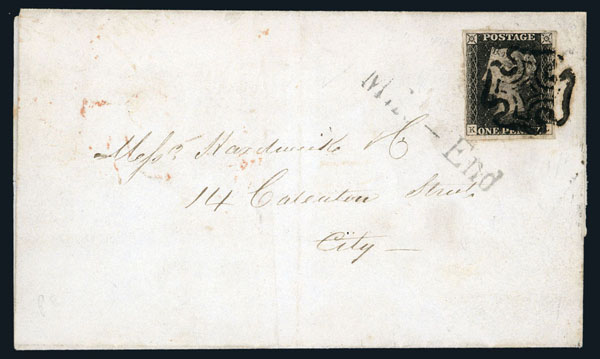 POSTAGE
ONE PENNY
K
Mile-End
Messrs Hardwick & Co
14 Coleman Street
City